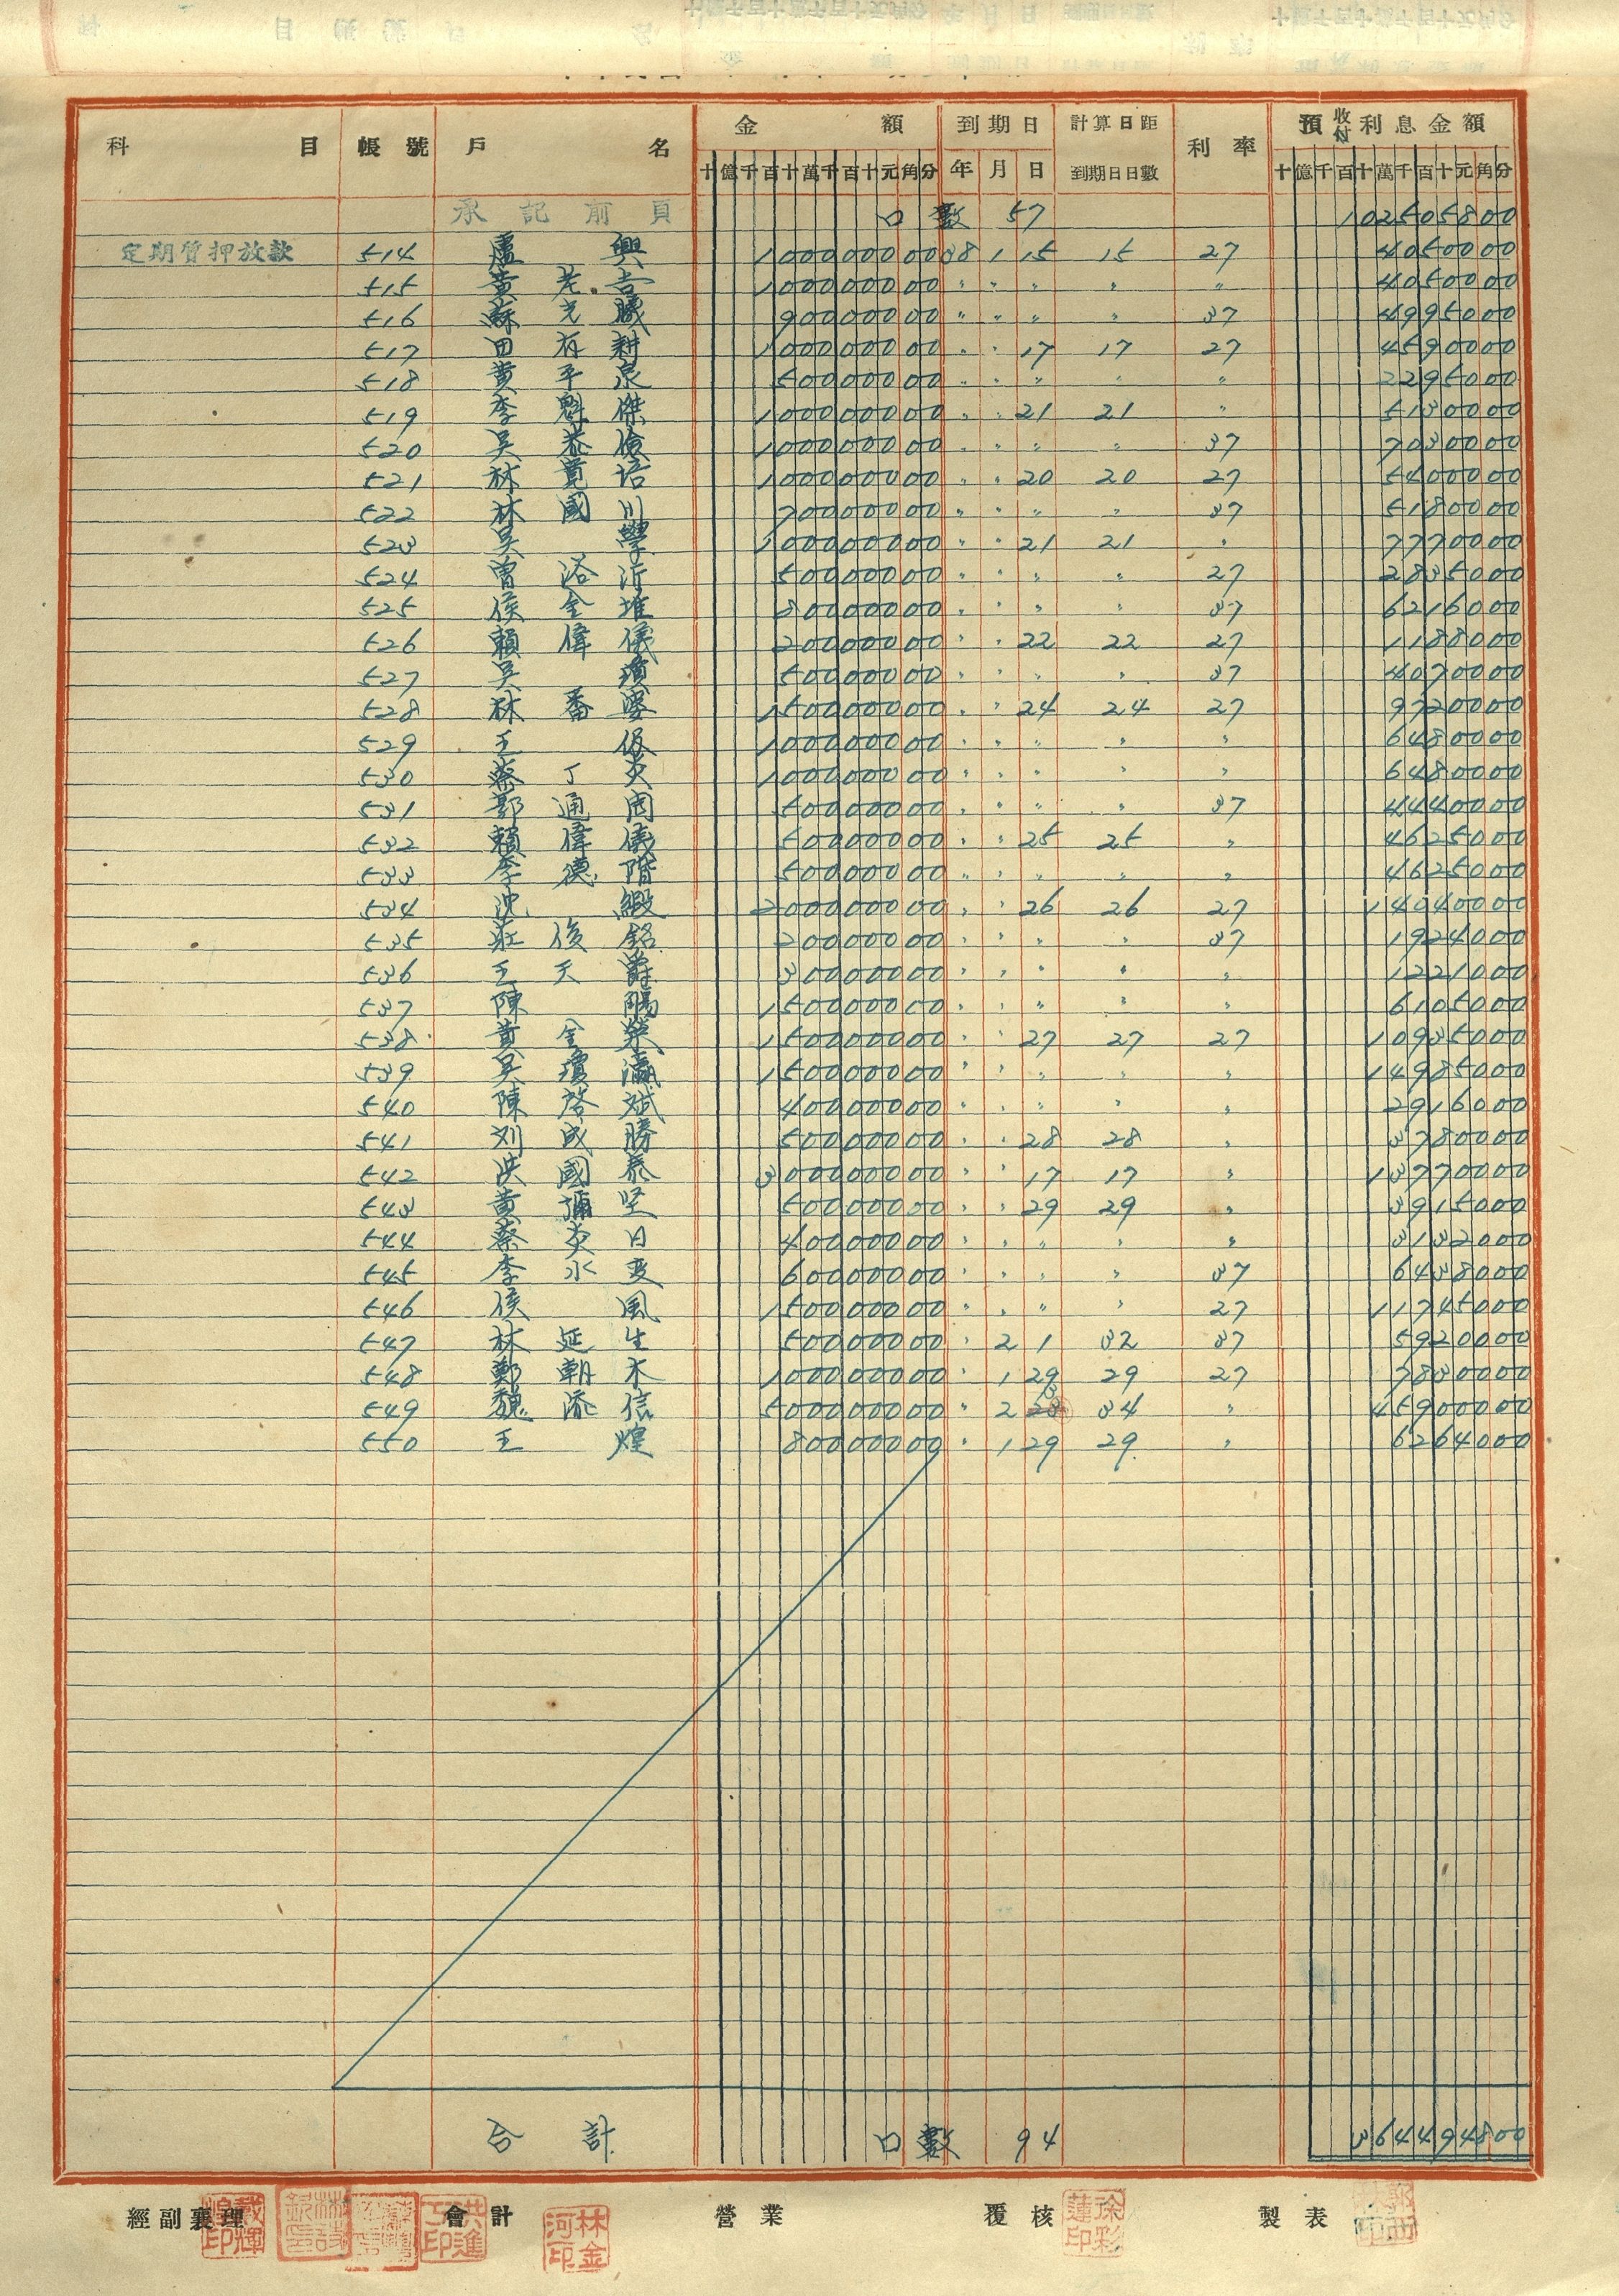 科目 帳號 戶名 金額 到期日 計算日距到期日日數 利率 預收付利息金額
十億千百十萬千百十元角分 年 月 日 十億千百十萬千百十元角分
承記前頁 口數 57 102505800
定期質押放款 514 盧興 100000000 38 1 15 15 27 4050000
515 黃老吉 100000000 〃 〃 〃 〃 〃 4050000
516 蘇光曦 90000000 〃 〃 〃 〃 37 4995000
517 田有耕 100000000 〃 〃 17 17 27 4590000
518 黃平泉 50000000 〃 〃 〃 〃 〃 2295000
519 李魁傑 100000000 〃 〃 21 21 〃 5130000
520 吳恭儉 100000000 〃 〃 〃 〃 37 7030000
521 林寬培 100000000 〃 〃 20 20 27 5400000
522 林國川 70000000 〃 〃 〃 〃 37 5180000
523 吳學 100000000 〃 〃 21 21 〃 7770000
524 曾浴沂 50000000 〃 〃 〃 〃 27 2835000
525 侯金堆 80000000 〃 〃 〃 〃 37 6216000
526 賴偉儀 20000000 〃 〃 22 22 27 1188000
527 吳瓊 50000000 〃 〃 〃 〃 37 4070000
528 林番婆 150000000 〃 〃 24 24 27 9720000
529 王 100000000 〃 〃 〃 〃 〃 6480000
530 蔡丁炎 100000000 〃 〃 〃 〃 〃 6480000
531 郭通周 50000000 〃 〃 〃 〃 37 4440000
532 賴偉儀 50000000 〃 〃 25 25 〃 4625000
533 李德階 50000000 〃 〃 〃 〃 〃 4625000
534 沈緞 200000000 〃 〃 26 26 27 14040000
535 莊俊銘 20000000 〃 〃 〃 〃 37 1924000
536 王天爵 30000000 〃 〃 〃 〃 〃 1221000
537 陳賜 150000000 〃 〃 〃 〃 〃 6105000
538 黃金榮 150000000 〃 〃 27 27 27 10935000
539 吳瓊瀛 150000000 〃 〃 〃 〃 〃 14985000
540 陳啓斌 40000000 〃 〃 〃 〃 〃 2916000
541 刘成勝 50000000 〃 〃 28 28 〃 3780000
542 洪國泰 300000000 〃 〃 17 17 〃 13770000
543 黃彌坚 50000000 〃 〃 29 29 〃 3915000
544 蔡炎日 40000000 〃 〃 〃 〃 〃 3132000
545 李水变 60000000 〃 〃 〃 〃 37 6438000
546 侯風 150000000 〃 〃 〃 〃 27 11745000
547 林延生 50000000 〃 2 1 32 37 5920000
548 鄭朝木 100000000 〃 1 29 29 27 7830000
549 魏添信 500000000 〃 2 3 34 〃 45900000
550 王煌 80000000 〃 1 29 29 〃 6264000
合計 口數 94 364494800
經副襄理 會計 營業 覆核 製表